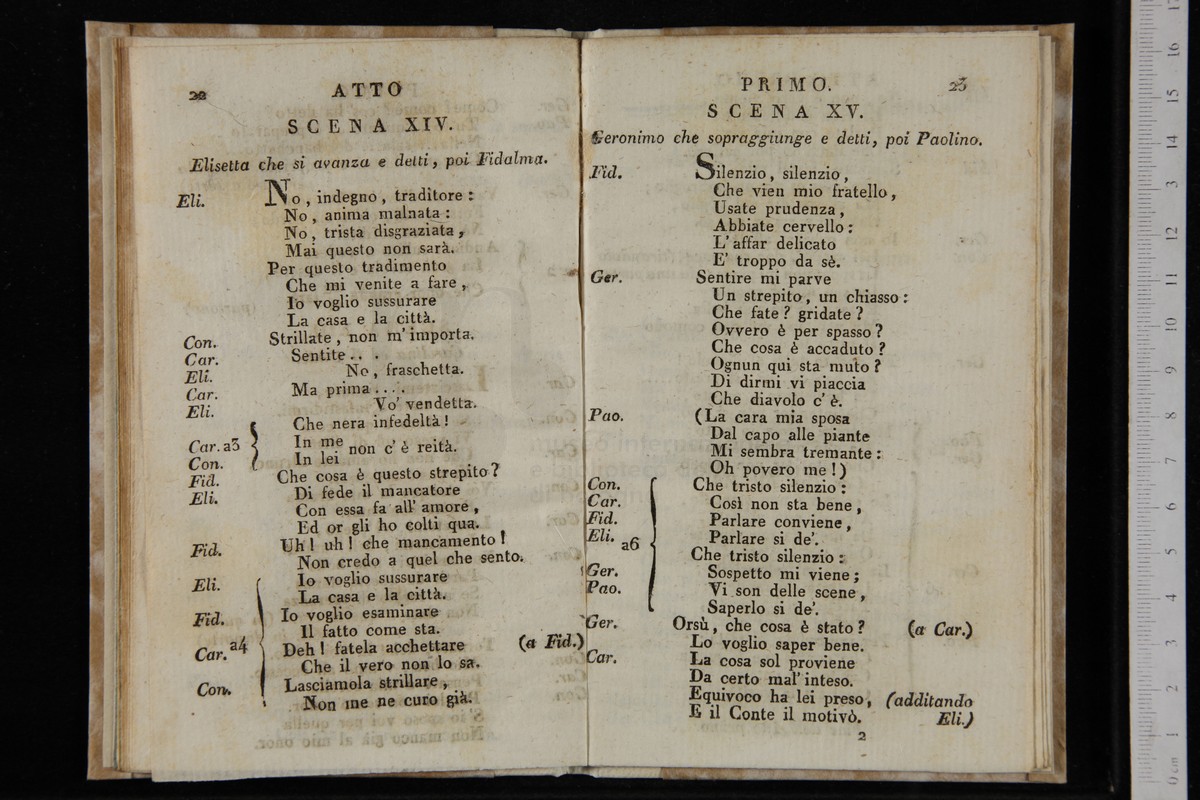 22 ATTO
SCENA XIV.
Elisetta che si avanza e detti, poi Fidalma.
Eli. No, indegno, traditore:
No, anima malnata:
No, trista disgraziata,
Mai questo non sarà.
Per questo tradimento
Che mi venite a fare,
Io voglio sussurare
La casa e la città.
Con. Strillate, non m'importa.
Car. Sentite . . .
Eli. No, fraschetta.
Car. Ma prima . . . .
Eli. Vo' vendetta.
Che nera infedeltà!
Car. a3 In me non c'è reità.
Con. In lei
Fid. Che cosa è questo strepito?
Eli. Di fede il mancatore
Con essa fa all' amore,
Ed or gli ho colti qua.
Fid. Uh! uh! che mancamento!
Non credo a quel che sento.
Eli. Io voglio sussurare
La casa e la città.
Fid. Io voglio esaminare
Il fatto come sta.
Car. a4 Deh! fatela acchettare (a Fid.)
Che il vero non lo sa.
Con. Lasciamola strillare,
Non me ne curo già.
PRIMO. 23
SCENA XV.
Geronimo che sopraggiunge e detti, poi Paolino.
Fid. Silenzio, silenzio,
Che vien mio fratello,
Usate prudenza,
Abbiate cervello:
L'affar delicato
E' troppo da sè.
Ger. Sentire mi parve
Un strepito, un chiasso:
Che fate? gridate?
Ovvero è per spasso?
Che cosa è accaduto?
Ognun qui sta muto?
Di dirmi vi piaccia
Che diavolo c'è.
Pao. (La cara mia sposa
Dal capo alle piante
Mi sembra tremante:
Oh povero me!)
Con. Che tristo silenzio:
Car. Così non sta bene,
Fid. Parlare conviene,
Eli. a6 Parlare si de'.
Che tristo silenzio:
Ger. Sospetto mi viene;
Pao. Vi son delle scene,
Saperlo si de'.
Ger. Orsù, che cosa è stato? (a Car.)
Lo voglio saper bene.
Car. La cosa sol proviene
Da certo mal' inteso.
Equivoco ha lei preso, (additando
E il Conte il motivò. Eli.)
2